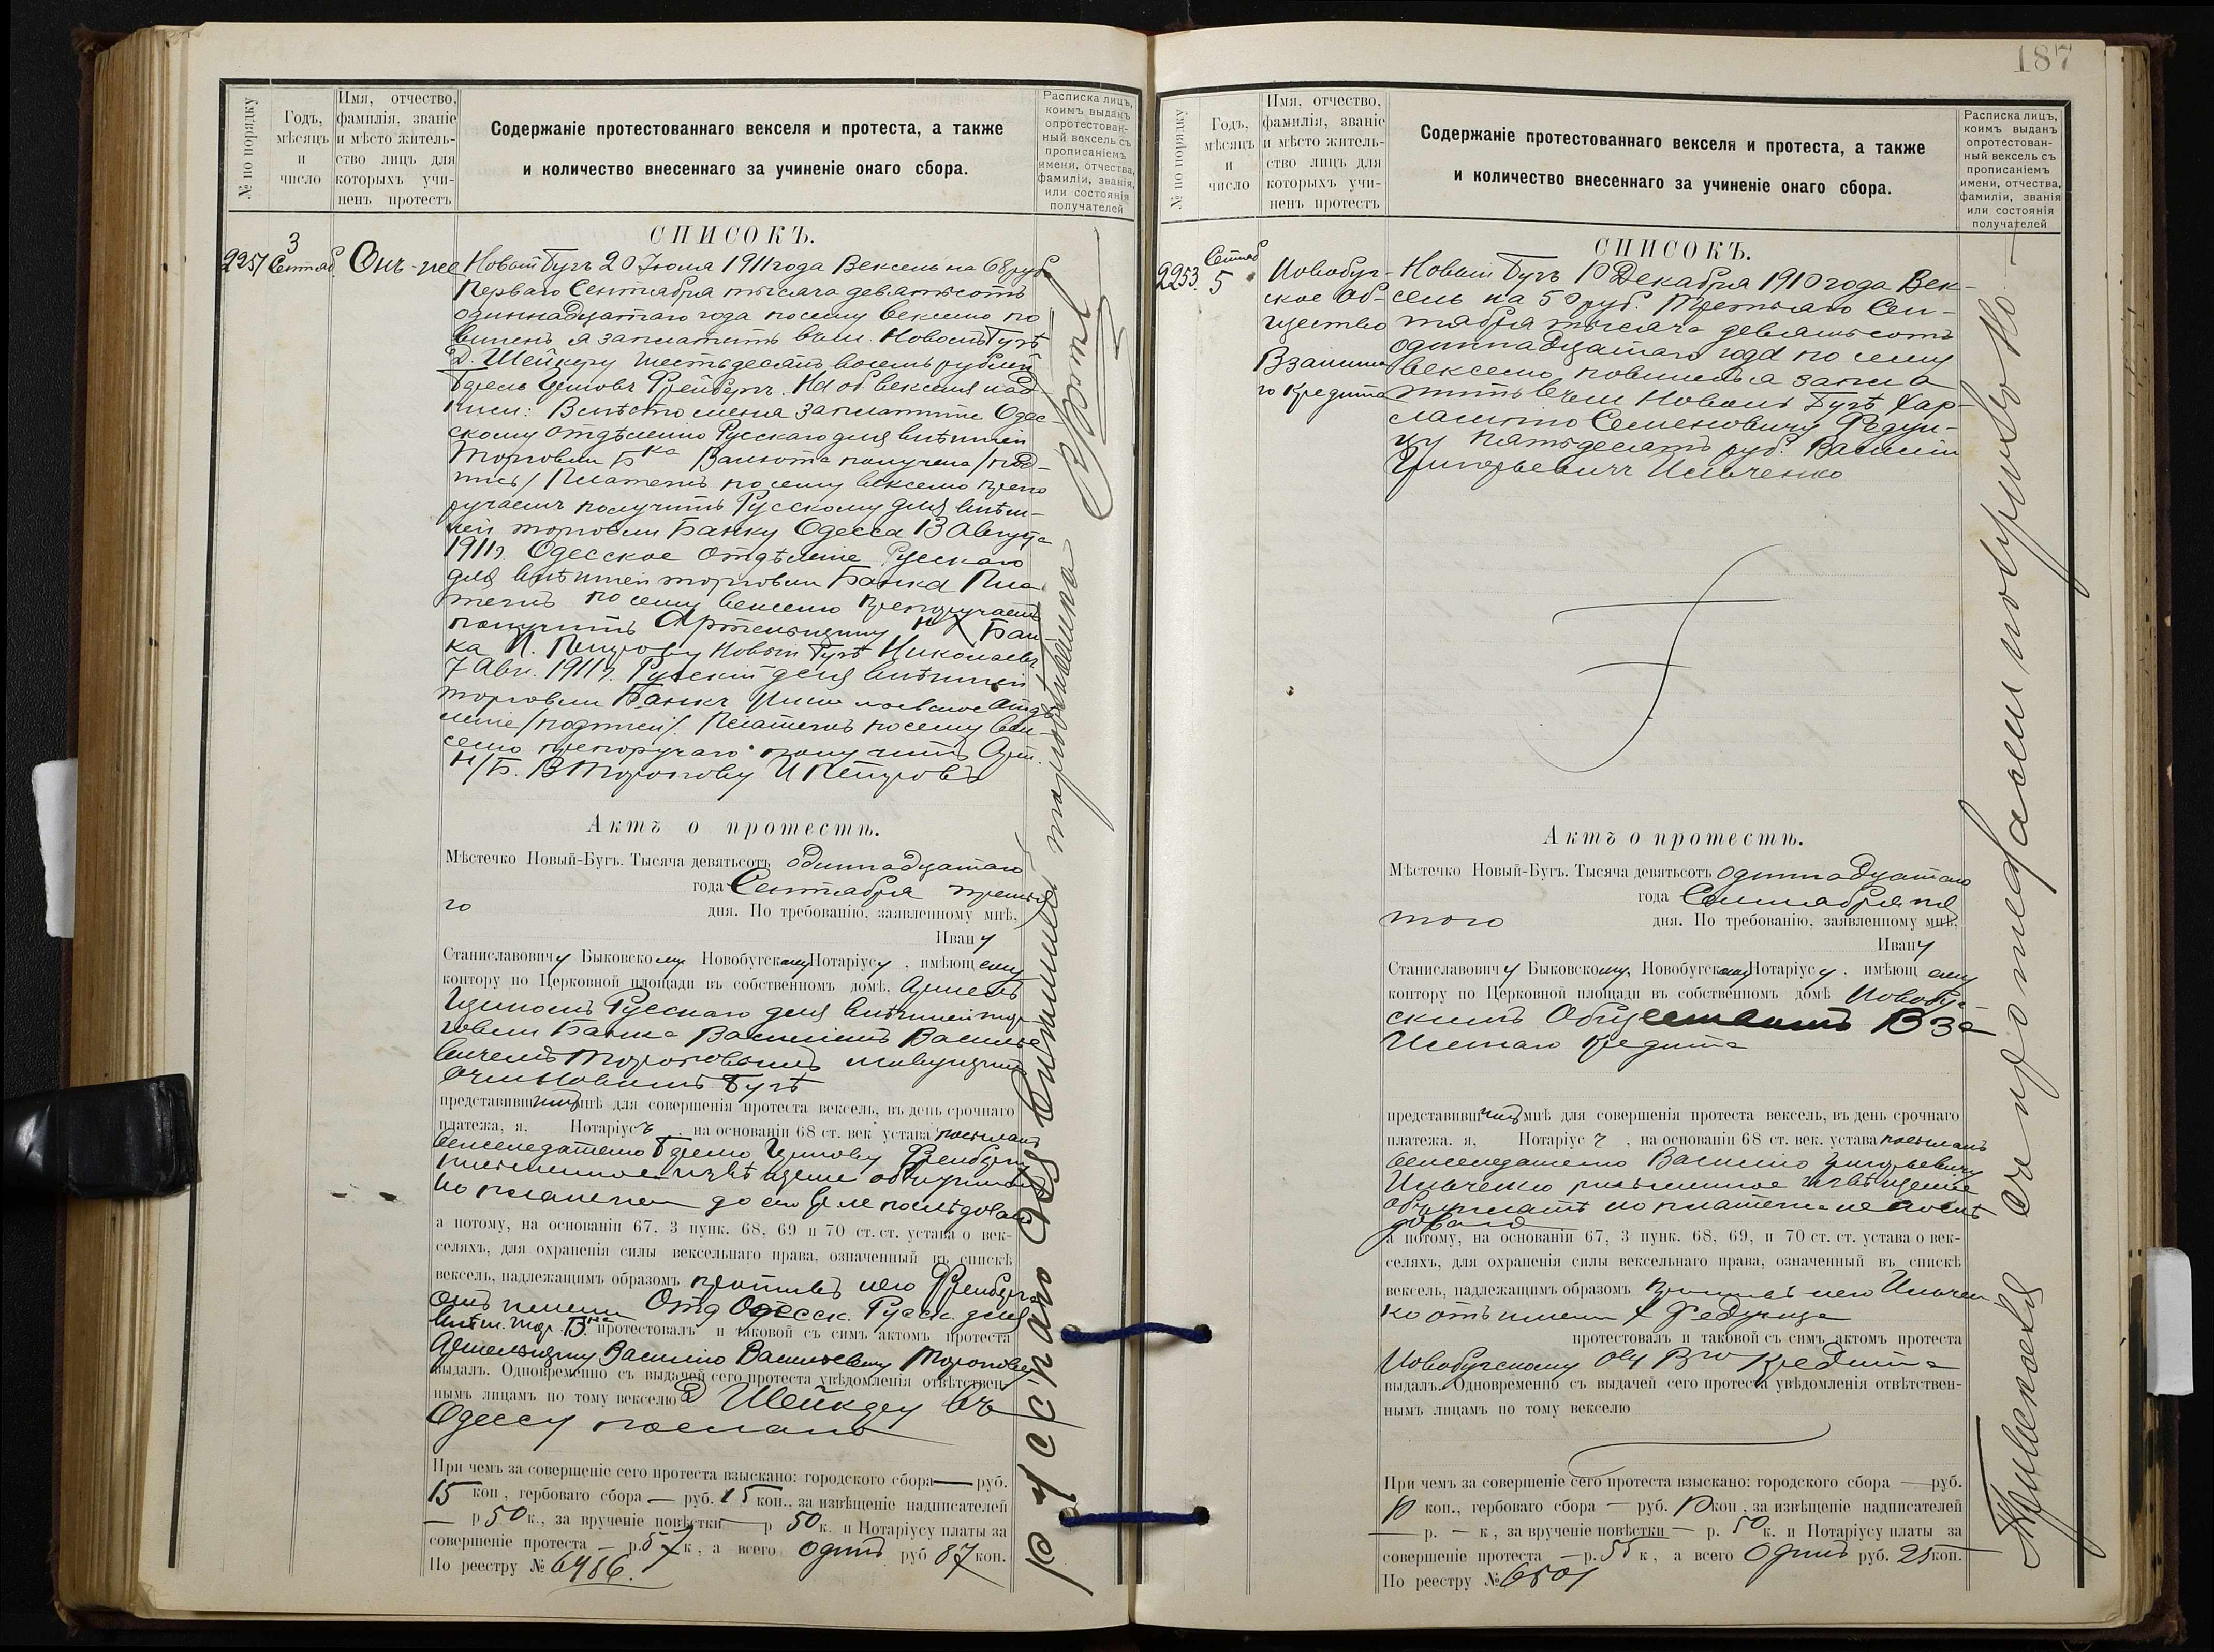 № по порядку
Годъ,
мѣсяцъ
и
число
Имя, отчество,
фамилія, званіе
и мѣсто житель-
ство лицъ для
которыхъ учи-
ненъ протестъ
Содержаніе протестованнаго векселя и протеста, а также
и количество внесеннаго за учиненіе онаго сбора.
Расписка лицъ,
коимъ выданъ
опротестован-
ный вексель съ
прописаніемъ
имени, отчества,
фамиліи, званія,
или состоянія
получателей
СПИСОКЪ.
3
Сентяб
Онъ-же
Новый Бугъ 20 Іюля 1911 года Вексель на 68 руб
Перваго Сентября тысяча девятьсотъ
одиннадцатаго года по сему векселю по
виненъ я заплатить въ м. Новомъ Бугѣ
Д. Шейкеру шестьдесятъ восемь рублей
Фрейбергъ. На об. векселя над-
писи: Вмѣсто меня заплатите Одес
скому Отдѣленію Русскаго для внѣшней
торговли Бка Валюта получена /под-
пись/ Платежъ по сему векселю препо
ручаемъ получить Русскому для внѣш-
ней торговли Банку Одесса 13 Августа
1911 г. Одесское Отдѣленіе Русскаго
для внѣшней торговли Банка Пла
тежъ по сему векселю препоручаемъ
получить Артельщику н/ Бан-
ка И. Петрову Новый Бугъ Николаевъ
7 Авг. 1911 г. Русскій для внѣшней
торговли Банкъ Николаевское Отдѣ
леніе /подписи/. Платежъ по сему век-
селю препоручаю получить Арт.
н/Б. В Торопову И Петровъ
Актъ о протестѣ.
Мѣстечко Новый-Бугъ. Тысяча девятьсотъ одиннадцатаго
года Сентября третья
го дня. По требованію, заявленному мнѣ,
Ивану
Станиславовичу Быковскому Новобугскому Нотаріусу, имѣющему
контору по Церковной площади въ собственномъ домѣ, Артель
щикомъ Русскаго для внѣшней тор-
говли Банка Василіемъ Василье
вичемъ Тороповымъ живущимъ
въ м. Новомъ Бугѣ
представившимъ мнѣ для совершенія протеста вексель, въ день срочнаго
платежа, я, Нотаріусъ, на основаніи 68 ст. век устава послалъ
векселедателю
письменное извѣщеніе
но платежа до сего вр. не послѣдовало
а потому, на основаніи 67, 3 пунк. 68, 69 и 70 ст. ст. устава о век-
селяхъ, для охраненія силы вексельнаго права, означенный въ спискѣ
вексель, надлежащимъ образомъ противъ него Фрейберга
отъ имени Отд Одесск. Русск. для
внѣш. тор. Бка протестовалъ и таковой съ симъ актомъ протеста
Артельщику Василію Васильевичу Торопову
выдалъ. Одновременно съ выдачей сего протеста увѣдомленія отвѣтствен-
нымъ лицамъ по тому векселю Д Шейкеру въ
Одессу послано
При чемъ за совершеніе сего протеста взыскано: городского сбора — руб.
15 коп, гербоваго сбора — руб. 15 коп., за извѣщеніе надписателей
— р 50 к., за врученіе повѣстки — р 50 к. и Нотаріусу платы за
совершеніе протеста — р. 57 к, а всего одинъ руб 87 коп.
По реестру № 6486.
187
№ по порядку
Годъ,
мѣсяцъ
и
число
Имя, отчество,
фамилія, званіе
и мѣсто житель-
ство лицъ для
которыхъ учи-
ненъ протестъ
Содержаніе протестованнаго векселя и протеста, а также
и количество внесеннаго за учиненіе онаго сбора.
Расписка лицъ,
коимъ выданъ
опротестован-
ный вексель съ
прописаніемъ
имени, отчества,
фамиліи, званія
или состоянія
получателей
СПИСОКЪ.
2253.
Сентяб
5
Новобуг-
ское Об-
щество
Взаимна
го Кредита
Новый Бугъ 10 Декабря 1910 года Век-
сель на 50 руб. Третьяго Сен-
тября тысяча девятьсотъ
одиннадцатаго года по сему
векселю повиненъ я запла
тить въ м. Новомъ Бугѣ Хар-
лампію Семеновичу Федун-
цу пятьдесятъ руб. Василій
Григорьевичъ Ильченко
Актъ о протестѣ.
Мѣстечко Новый-Бугъ. Тысяча девятьсотъ одиннадцатаго
года Сентября пя
таго дня. По требованію, заявленному мнѣ,
Ивану
Станиславовичу Быковскому, Новобугскому Нотаріусу, имѣющему
контору по Церковной площади въ собственномъ домѣ Новобуг-
скимъ Обществомъ Вза
имнаго Кредита
представившимъ мнѣ для совершенія протеста вексель, въ день срочнаго
платежа. я, Нотаріусъ, на основаніи 68 ст. век. устава послалъ
векселедателю Василію Григорьевичу
Ильченко письменное извѣщеніе
но платежа не послѣ
довало
а потому, на основаніи 67, 3 пунк. 68, 69, и 70 ст. ст. устава о век-
селяхъ, для охраненія силы вексельнаго права, означенный въ спискѣ
вексель, надлежащимъ образомъ противъ него Ильчен
ко отъ имени Х Федунца
протестовалъ и таковой съ симъ актомъ протеста
Новобугскому Об Вго Кредита
выдалъ. Одновременно съ выдачей сего протеста увѣдомленія отвѣтствен-
нымъ лицамъ по тому векселю
При чемъ за совершеніе сего протеста взыскано: городского сбора — руб.
10 коп., гербоваго сбора — руб. 10 коп, за извѣщеніе надписателей
— р. — к, за врученіе повѣстки — р. 50 к. и Нотаріусу платы за
совершеніе протеста — р. 55 к, а всего Одинъ руб. 25 коп.
По реестру № 6501